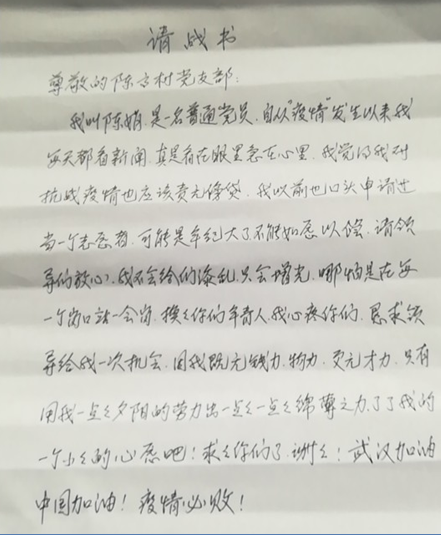 请战书
尊敬的陈方村党支部:
我叫陈娟,是一名普通党员,自从"疫情"发生以来我
每天都看新闻,真是看在眼里急在心里,我觉得我对
抗战疫情也应该责无傍贷,我以前也口头申请过
当一个志愿者,可能是年纪大了不能如愿以偿,请领
导们放心,我不会给你们添乱,只会增光,哪怕是在每
一个岗口站一会岗,换换你们年青人,我心疼你们,恳求领
导给我一次机会,因我既无钱力,物力,更无才力,只有
用我一点点夕阳的劳力出一点点绵薄之力,了了我的
一个小小的心愿吧!求求你们了,谢谢!武汉加油
中国加油!疫情必败!